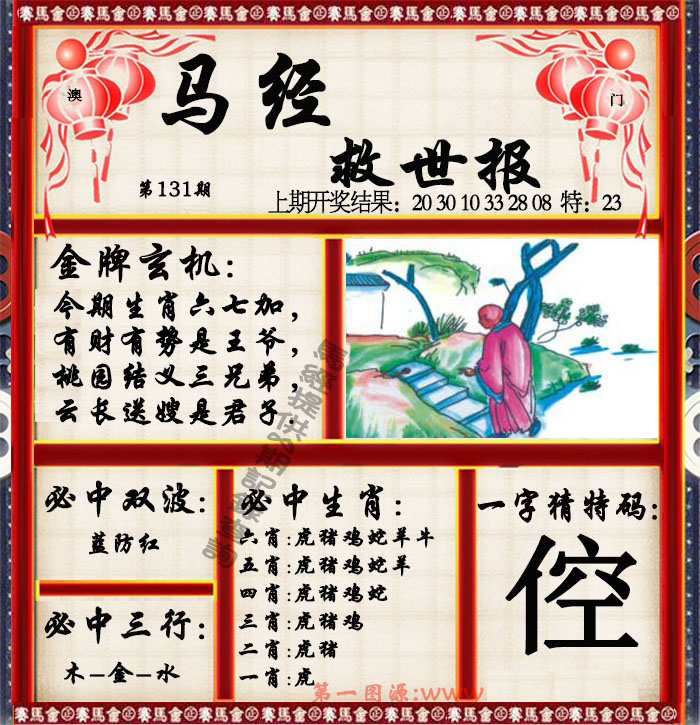 賽馬會正賽馬會正賽馬會正賽馬會正賽馬會正賽馬會正賽馬會
澳
门
马经
救世报
第131期
上期开奖结果：20 30 10 33 28 08 特：23
金牌玄机：
今期生肖六七加，
有财有势是王爷，
桃园结义三兄弟，
云长送嫂是君子.
必中双波：
蓝防红
必中三行：
木–金–水
必中生肖：
六肖:虎猪鸡蛇羊牛
五肖:虎猪鸡蛇羊
四肖:虎猪鸡蛇
三肖:虎猪鸡
二肖:虎猪
一肖:虎
一字猜特码:
倥
第一图源:www